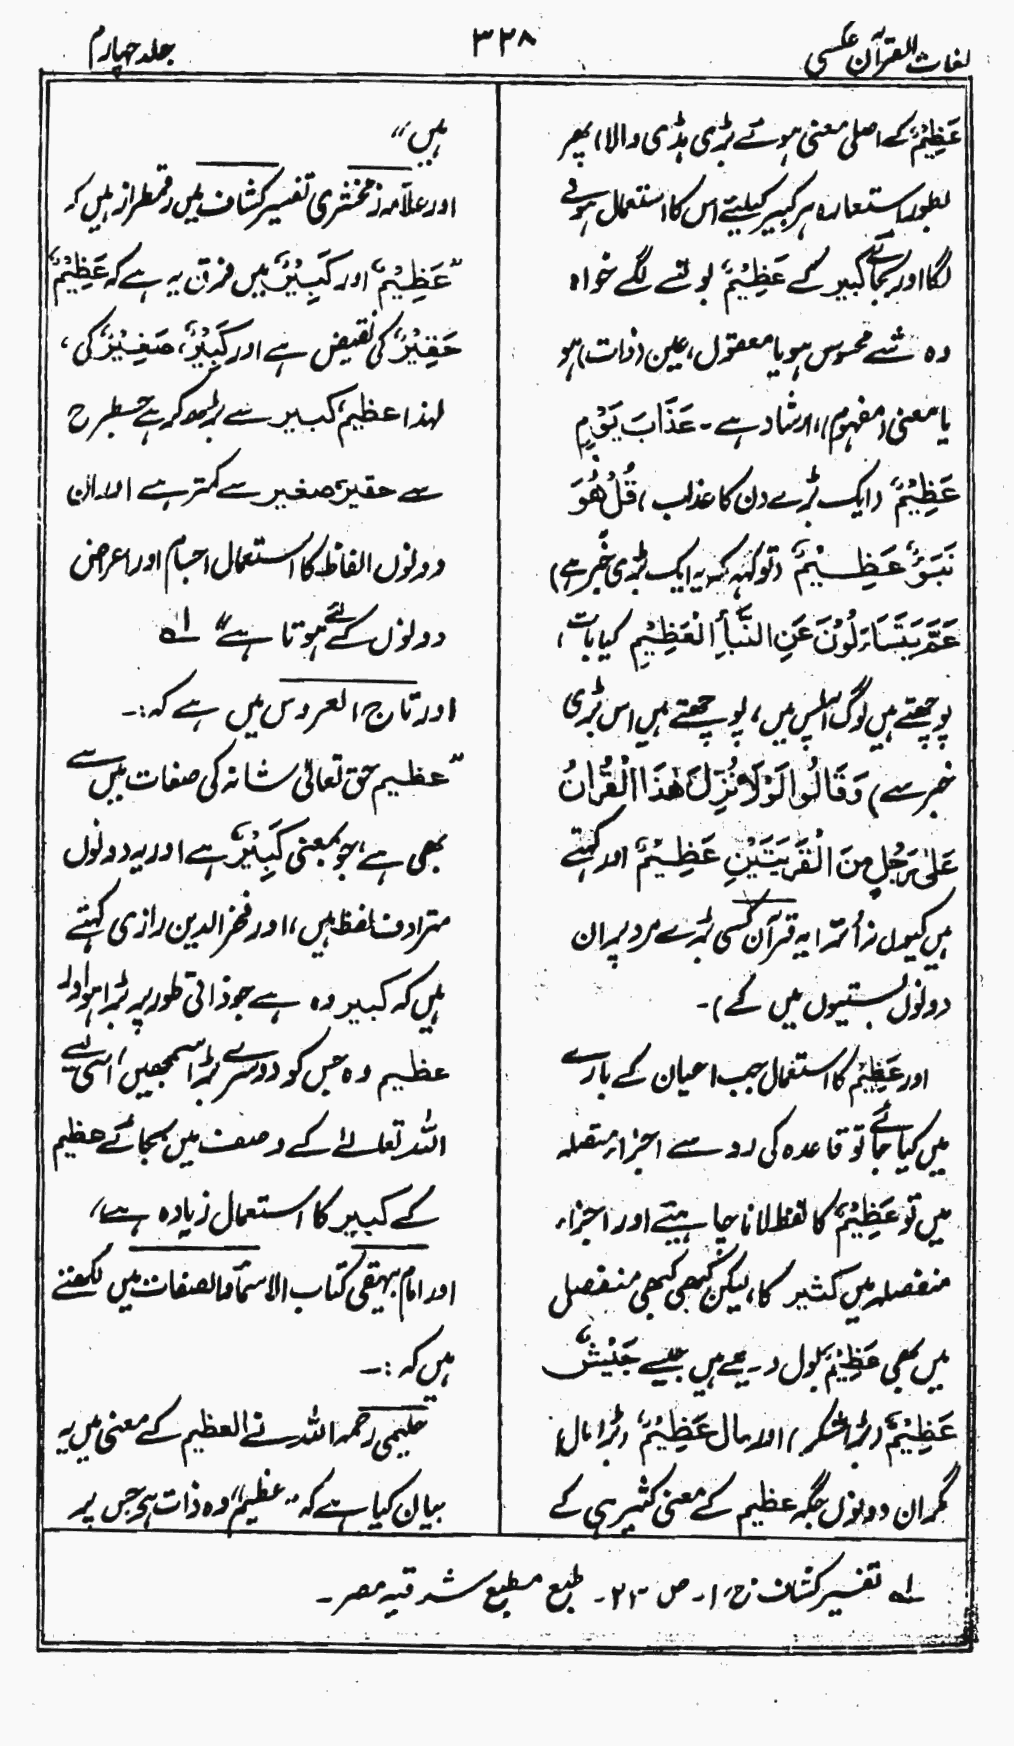 لغات القرآن عکسی
۳۲۸
جلد چہارم
عَظِیْمٌ کے اصلی معنی ہوئے بڑی ہڈی والا) پھر
بطور استعارہ ہر کبیر کیلیئے اس کا استعمال ہونے
لگا اور بجائے کبیر کے عَظِیْمٌ بولنے لگے خواہ
وہ شے محسوس ہو یا معقول، عین (ذات) ہو
یا معنی (مفہوم)، ارشاد ہے۔ عَذَابَ یَوْمٍ
عَظِیْمٍ (ایک بڑے دن کا عذاب، قُلْ ھُوَ
نَبَؤٌ عَظِیْمٌ (تو کہہ کہ یہ ایک بڑی خبر ہے)
عَمَّ یَتَسَاءَلُوْنَ عَنِ النَّبَأِ الْعَظِیْمِ کیا بات،
پوچھتے ہیں لوگ آپس میں، پوچھتے ہیں اس بڑی
خبر سے) وَقَالُوا لَوْلَا نُزِّلَ ھٰذَا الْقُرْاٰنُ
عَلٰی رَجُلٍ مِنَ الْقَرْیَتَیْنِ عَظِیْمٍ اور کہتے
ہیں کیوں نہ اُترا یہ قرآن کسی بڑے مرد پر ان
دونوں بستیوں میں کے)۔
اور عَظِیْمٌ کا استعمال جب اعیان کے بارے
میں کیا جائے تو قاعدہ کی رو سے اجزاء متصلہ
میں تو عَظِیْمٌ کا لفظ لانا چاہیئے اور اجزاء
منفصلہ میں کثیر کا، لیکن کبھی کبھی منفصل
میں بھی عَظِیْمٌ بول دیتے ہیں جیسے جَیْشٌ
عَظِیْمٌ (بڑا لشکر) اور مال عَظِیْمٌ (بڑا مال)
مگر ان دونوں جگہ عظیم کے معنی کثیر ہی کے
ہیں“
اور علامہ زمخشری تفسیر کشاف میں رقمطراز ہیں کہ
”عَظِیْمٌ اور کَبِیْرٌ میں فرق یہ ہے کہ عَظِیْمٌ
حَقِیْرٌ کی نقیض ہے اور کَبِیْرٌ، صَغِیْرٌ کی،
لہذا عظیم کبیر سے بڑھ کر ہے جسطرح
سے حقیر صغیر سے کمتر ہے اور ان
دونوں الفاظ کا استعمال اجسام اور اعراض
دونوں کے لئے ہوتا ہے“ لہ
اور تاج العروس میں ہے کہ:۔
”عظیم حق تعالیٰ شانہ کی صفات میں سے
بھی ہے جو بمعنی کَبِیْرٌ ہے اور یہ دونوں
مترادف لفظ ہیں، اور فخر الدین رازی کہتے
ہیں کہ کبیر وہ ہے جو ذاتی طور پر بڑا ہو اور
عظیم وہ جس کو دوسرے بڑا سمجھیں، اسی لیے
اللہ تعالےٰ کے وصف میں بجائے عظیم
کے کبیر کا استعمال زیادہ ہے“
اور امام بیہقی کتاب الاسماء والصفات میں لکھتے
ہیں کہ:۔
حلیمی رحمہ اللہ نے العظیم کے معنی میں یہ
بیان کیا ہے کہ ”عظیم“ وہ ذات ہے جس پر
لہ تفسیر کشاف ج ۱۔ ص ۲۳۔ طبع مطبع شرقیہ مصر۔